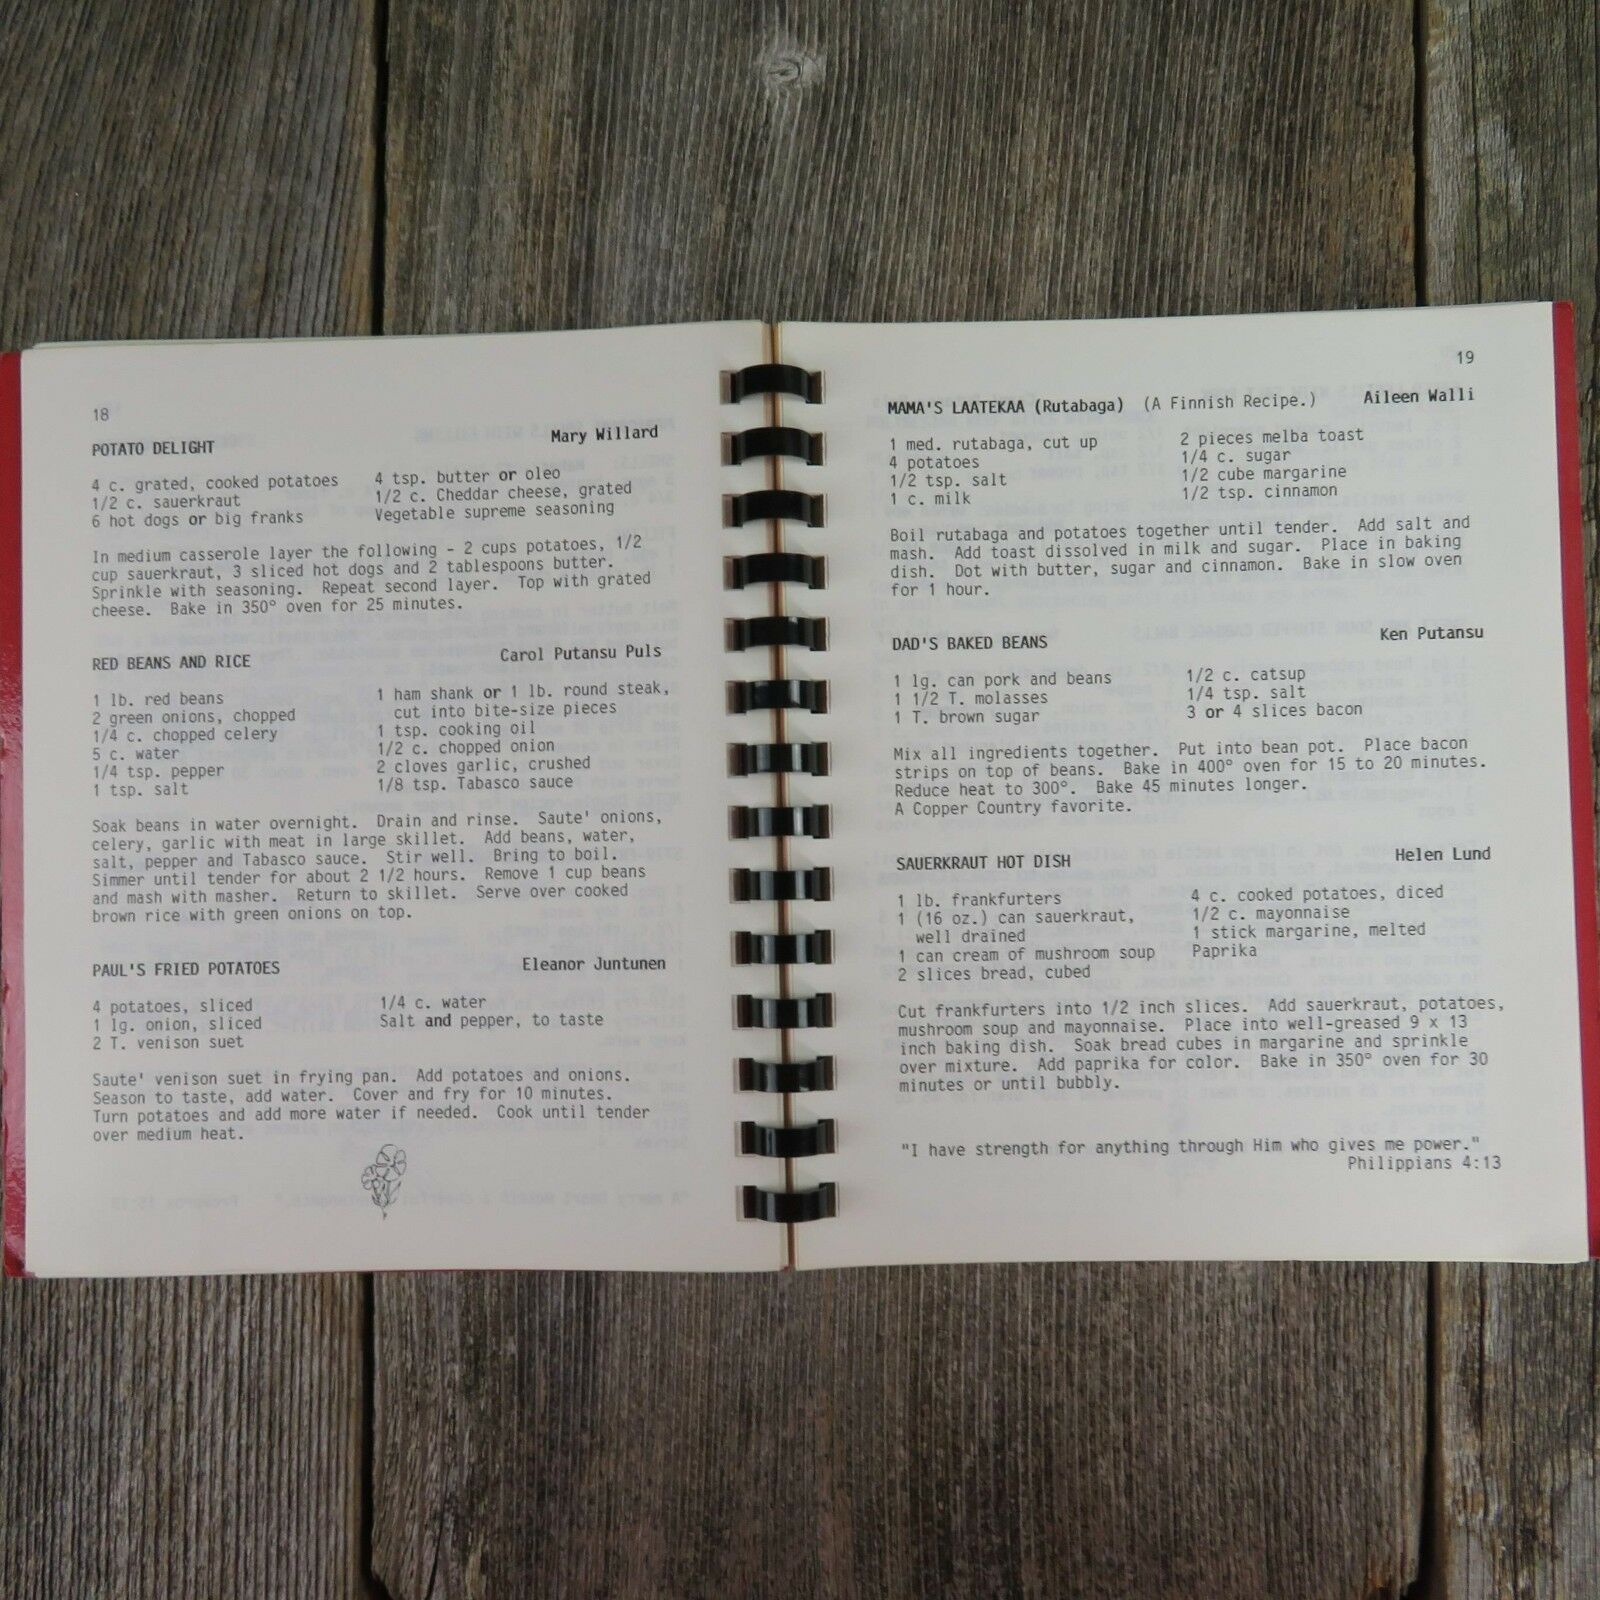 18
POTATO DELIGHT Mary Willard
4 c. grated, cooked potatoes 4 tsp. butter or oleo
1/2 c. sauerkraut 1/2 c. Cheddar cheese, grated
6 hot dogs or big franks Vegetable supreme seasoning
In medium casserole layer the following - 2 cups potatoes, 1/2
cup sauerkraut, 3 sliced hot dogs and 2 tablespoons butter.
Sprinkle with seasoning. Repeat second layer. Top with grated
cheese. Bake in 350° oven for 25 minutes.
RED BEANS AND RICE Carol Putansu Puls
1 lb. red beans 1 ham shank or 1 lb. round steak,
2 green onions, chopped cut into bite-size pieces
1/4 c. chopped celery 1 tsp. cooking oil
5 c. water 1/2 c. chopped onion
1/4 tsp. pepper 2 cloves garlic, crushed
1 tsp. salt 1/8 tsp. Tabasco sauce
Soak beans in water overnight. Drain and rinse. Saute' onions,
celery, garlic with meat in large skillet. Add beans, water,
salt, pepper and Tabasco sauce. Stir well. Bring to boil.
Simmer until tender for about 2 1/2 hours. Remove 1 cup beans
and mash with masher. Return to skillet. Serve over cooked
brown rice with green onions on top.
PAUL'S FRIED POTATOES Eleanor Juntunen
4 potatoes, sliced 1/4 c. water
1 lg. onion, sliced Salt and pepper, to taste
2 T. venison suet
Saute' venison suet in frying pan. Add potatoes and onions.
Season to taste, add water. Cover and fry for 10 minutes.
Turn potatoes and add more water if needed. Cook until tender
over medium heat.
19
MAMA'S LAATEKAA (Rutabaga) (A Finnish Recipe.) Aileen Walli
1 med. rutabaga, cut up 2 pieces melba toast
4 potatoes 1/4 c. sugar
1/2 tsp. salt 1/2 cube margarine
1 c. milk 1/2 tsp. cinnamon
Boil rutabaga and potatoes together until tender. Add salt and
mash. Add toast dissolved in milk and sugar. Place in baking
dish. Dot with butter, sugar and cinnamon. Bake in slow oven
for 1 hour.
DAD'S BAKED BEANS Ken Putansu
1 lg. can pork and beans 1/2 c. catsup
1 1/2 T. molasses 1/4 tsp. salt
1 T. brown sugar 3 or 4 slices bacon
Mix all ingredients together. Put into bean pot. Place bacon
strips on top of beans. Bake in 400° oven for 15 to 20 minutes.
Reduce heat to 300°. Bake 45 minutes longer.
A Copper Country favorite.
SAUERKRAUT HOT DISH Helen Lund
1 lb. frankfurters 4 c. cooked potatoes, diced
1 (16 oz.) can sauerkraut, 1/2 c. mayonnaise
well drained 1 stick margarine, melted
1 can cream of mushroom soup Paprika
2 slices bread, cubed
Cut frankfurters into 1/2 inch slices. Add sauerkraut, potatoes,
mushroom soup and mayonnaise. Place into well-greased 9 x 13
inch baking dish. Soak bread cubes in margarine and sprinkle
over mixture. Add paprika for color. Bake in 350° oven for 30
minutes or until bubbly.
"I have strength for anything through Him who gives me power."
Philippians 4:13